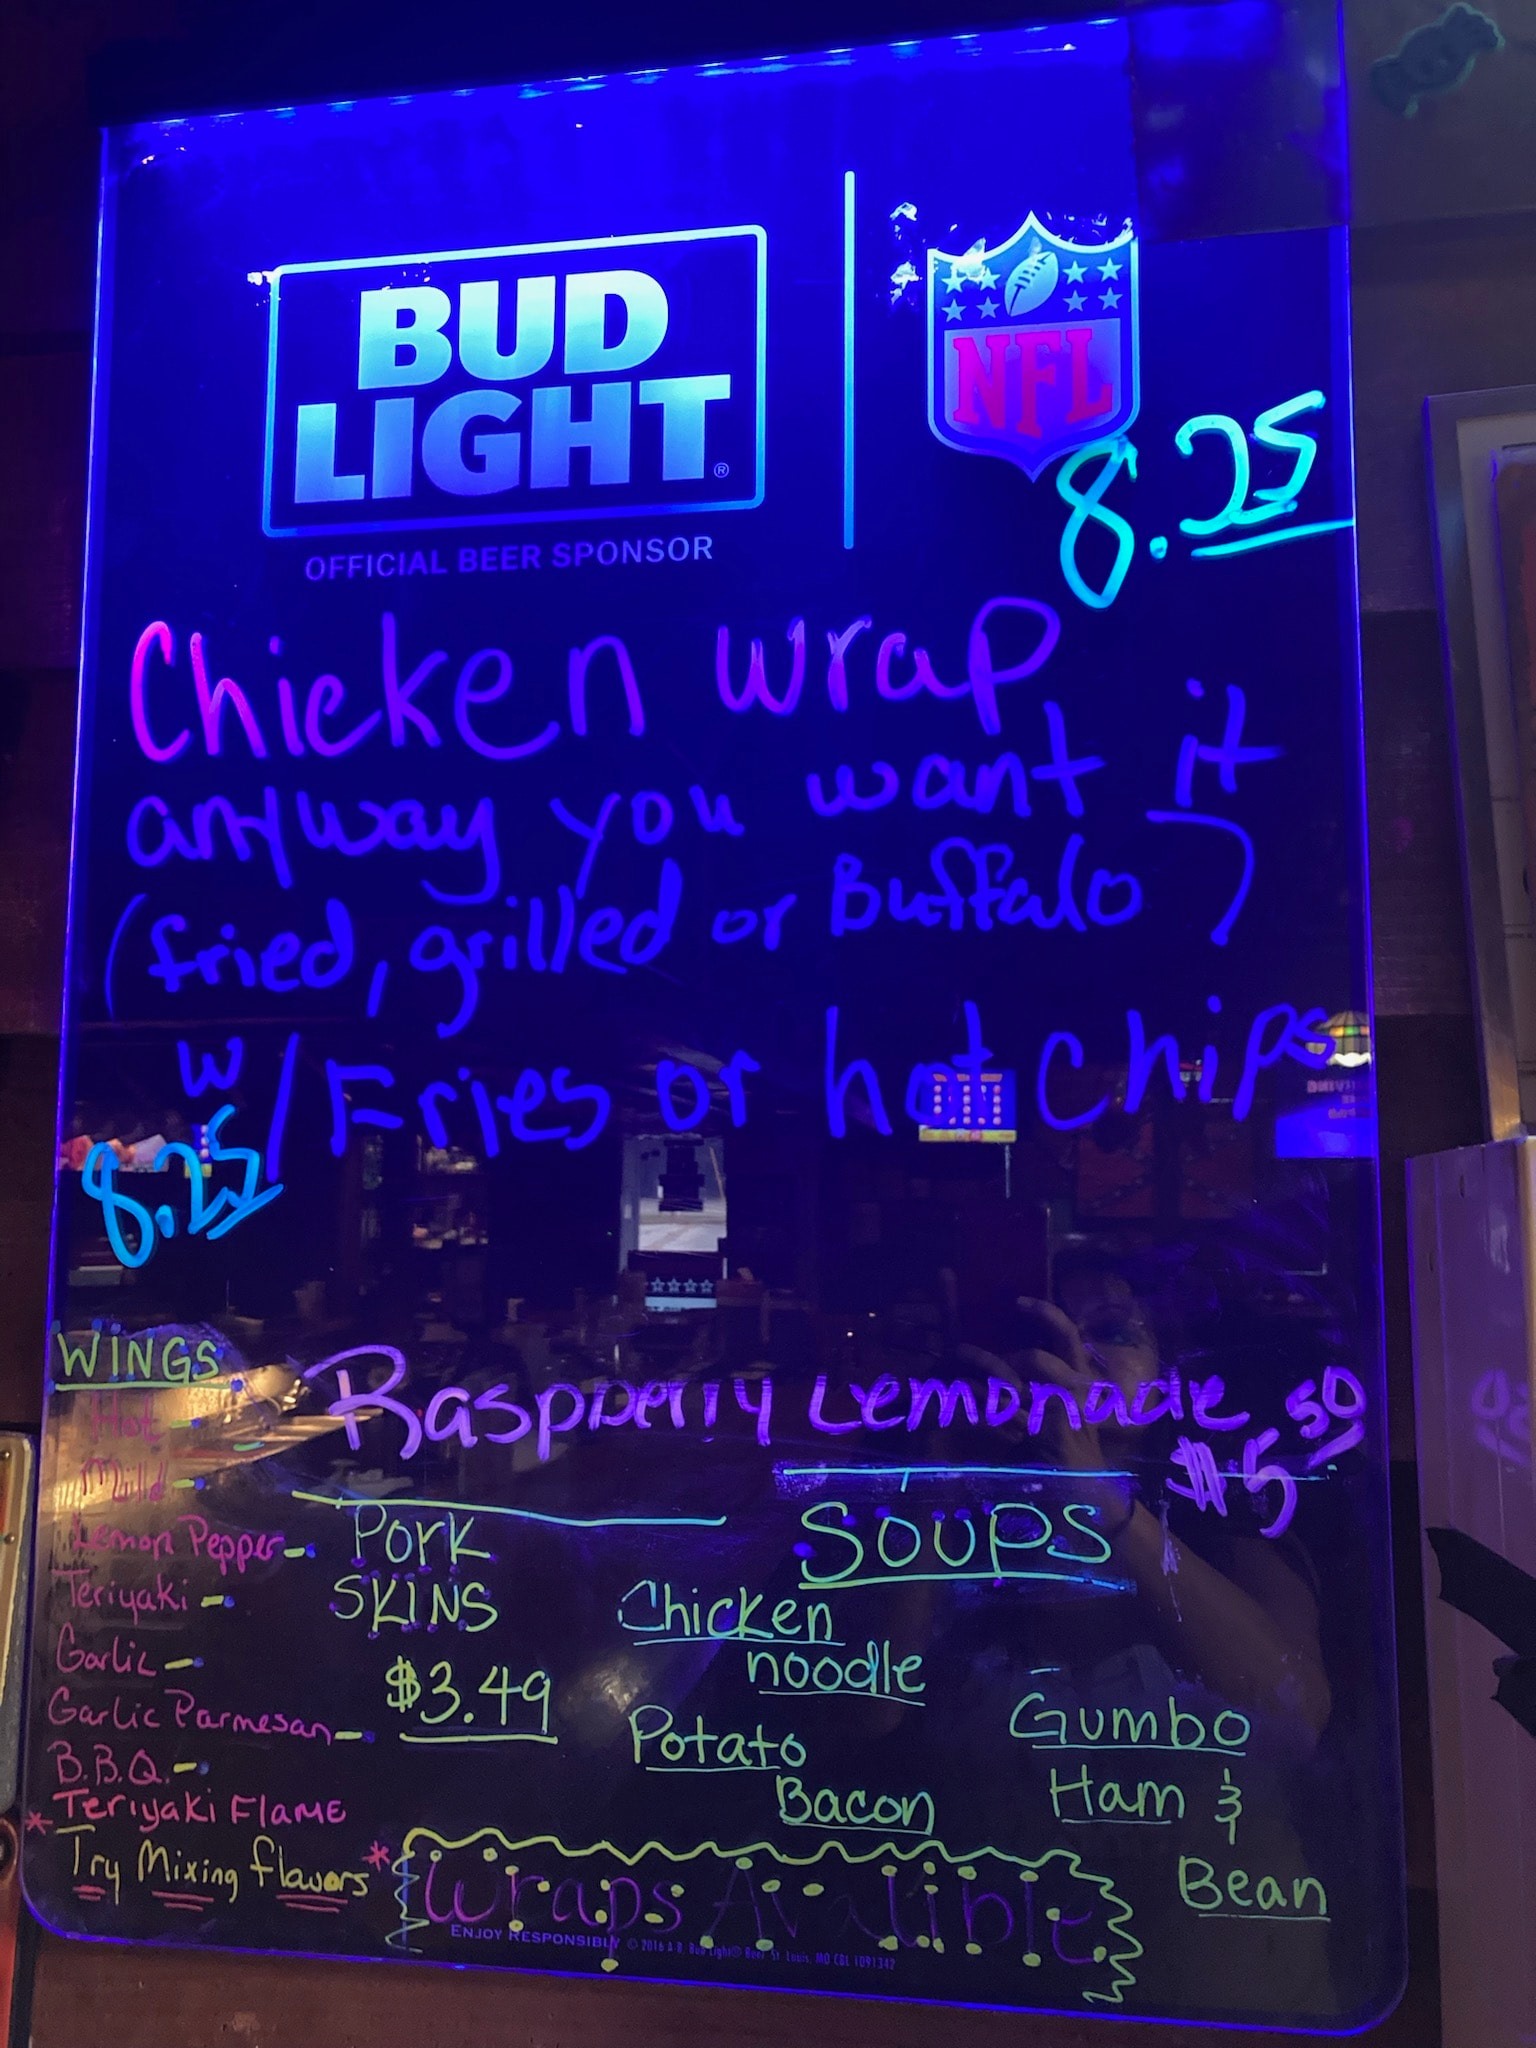 BUD
LIGHT®
OFFICIAL BEER SPONSOR
NFL
8.25
Chicken wrap
anyway you want it
(fried, grilled or Buffalo)
w/Fries or hot chips
8.25
Raspberry Lemonade
$5 50
WINGS
Hot -
Mild -
Lemon Pepper -
Teriyaki -
Garlic -
Garlic Parmesan -
B.B.Q. -
Teriyaki FLAME
* Try Mixing flavors *
PORK
SKINS
$3.49
SOUPS
Chicken
noodle
Potato
Bacon
Gumbo
Ham &
Bean
Wraps Avalible
ENJOY RESPONSIBLY © 2016 A-B, Bud Light® Beer, St. Louis, MO